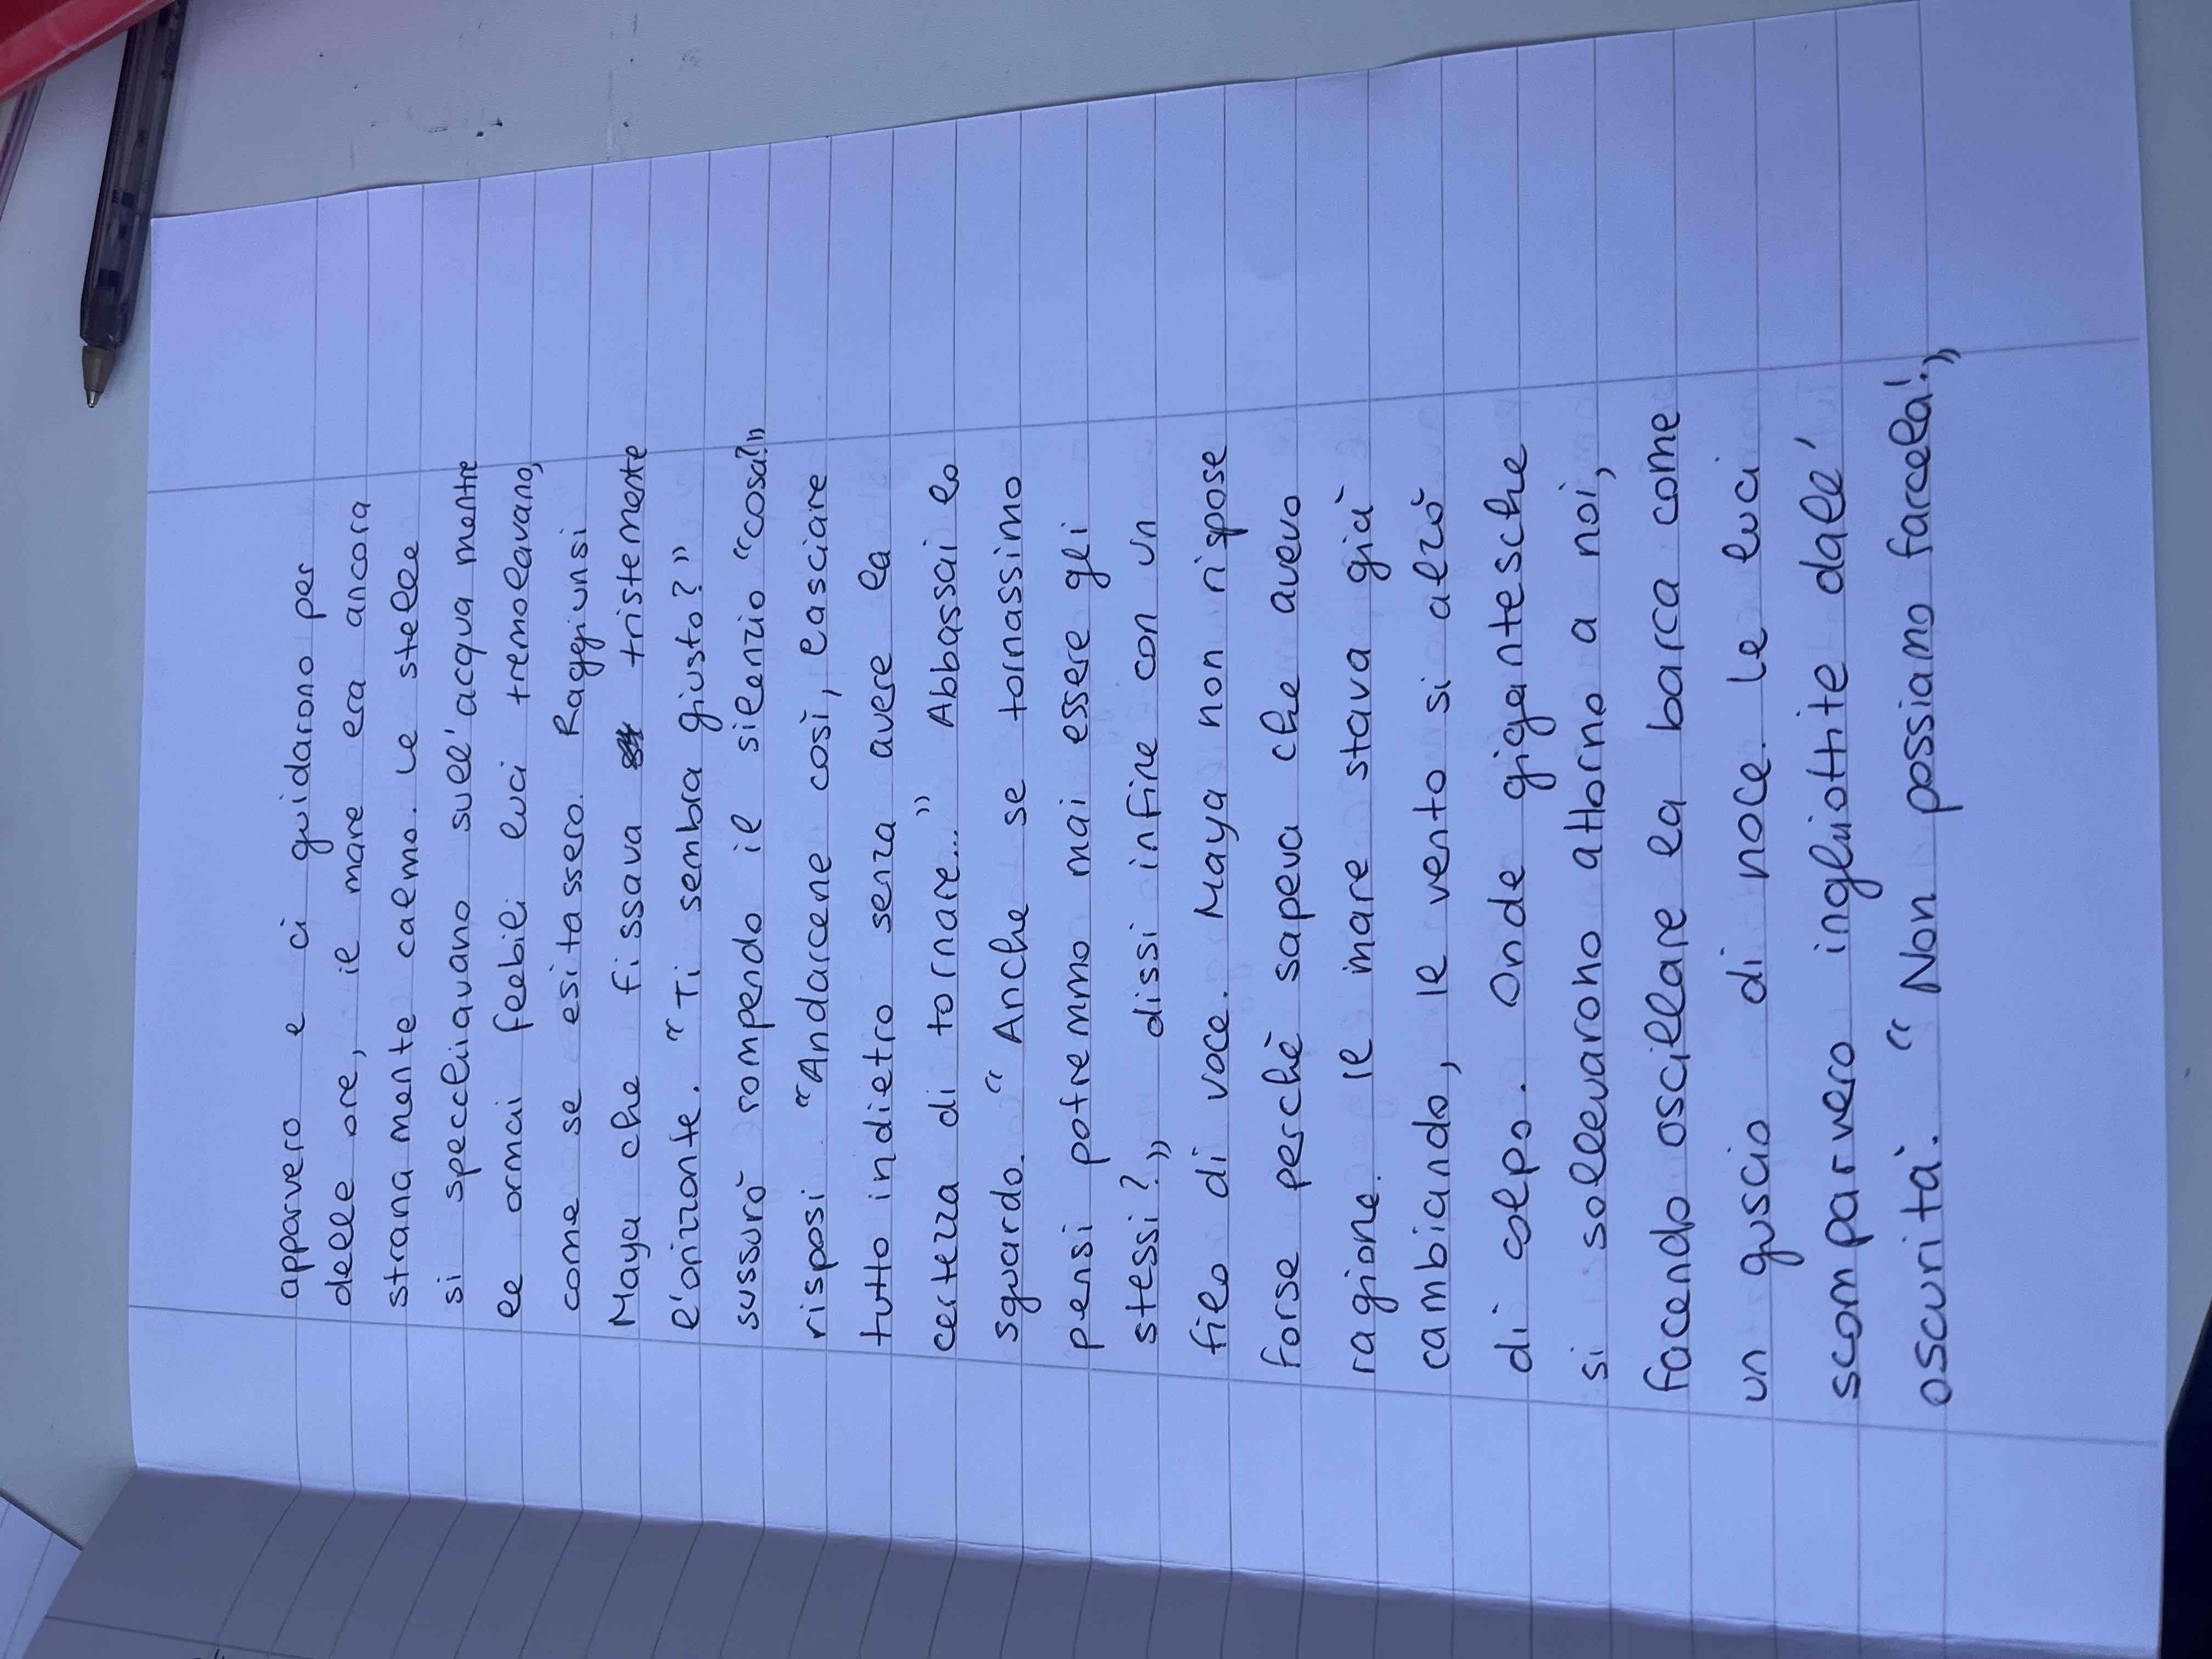 apparvero e ci guidarono per
delle ore, il mare era ancora
stranamente calmo. Le stelle
si specchiavano sull'acqua mentre
le ormai feebili luci tremolavano,
come se esitassero. Raggiunsi
Maya che fissava tristemente
l'orizzonte. "Ti sembra giusto?"
sussurò rompendo il silenzio "cosa?"
risposi "Andarcene così, lasciare
tutto indietro senza avere la
certezza di tornare..." Abbassai lo
sguardo. "Anche se tornassimo
pensi potremmo mai essere gli
stessi?" dissi infine con un
filo di voce. Maya non rispose
forse perchè sapeva che avevo
ragione. Il mare stava già
cambiando, Il vento si alzò
di colpo. Onde gigantesche
si sollevarono attorno a noi,
facendo oscillare la barca come
un guscio di noce. Le luci
scomparvero inghiottite dall'
oscurità. "Non possiamo farcela!"